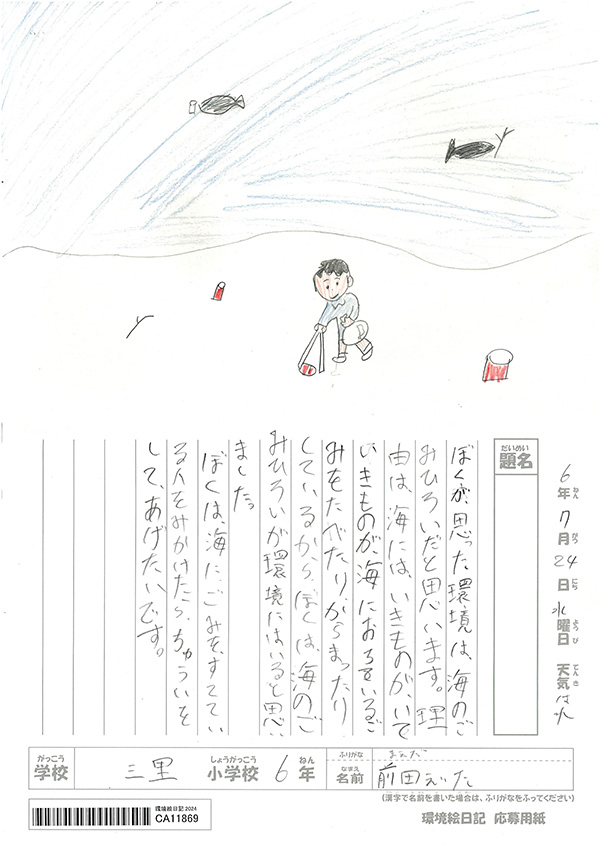 6年 7月 24日 水曜日 天気 はれ
ねん がつ にち ようび てんき
だいめい
題名
ぼくが、思った環境は、海のご
みひろいだと思います。理
由は、海には、いきものが、いて
いきものが、海におちているご
みをたべたり、からまったり
しているから、ぼくは、海のご
みひろいが環境にはいると思い
ました。
ぼくは、海に、ごみを、すててい
る人をみかけたら、ちゅういを
して、あげたいです。
がっこう しょうがっこう ねん
学校 三里 小学校 6年
ふりがな まえだ
なまえ
名前 前田えいた
(漢字で名前を書いた場合は、ふりがなをふってください)
環境絵日記 2024
CA11869
環境絵日記 応募用紙